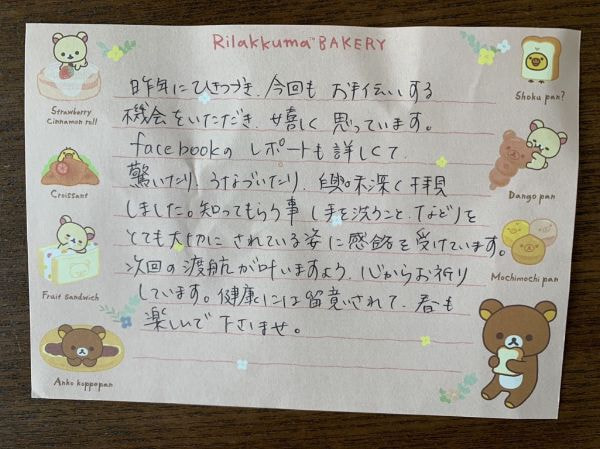 Rilakkuma™ BAKERY
昨年にひきつづき、今回も お手伝いする
機会をいただき、嬉しく 思っています。
facebookの レポートも詳しくて、
驚いたり うなづいたり、興味深く拝見
しました。知ってもらう事 手を洗うこと、などりを
とても大切に されている姿に感銘を受けています。
次回の渡航が叶いますよう、心からお祈り
しています。健康には留意されて、春も
楽しんで 下さいませ。
Strawberry
Cinnamon roll
Croissant
Fruit sandwich
Anko koppepan
Shoku pan?
Dango pan
Mochimochi pan